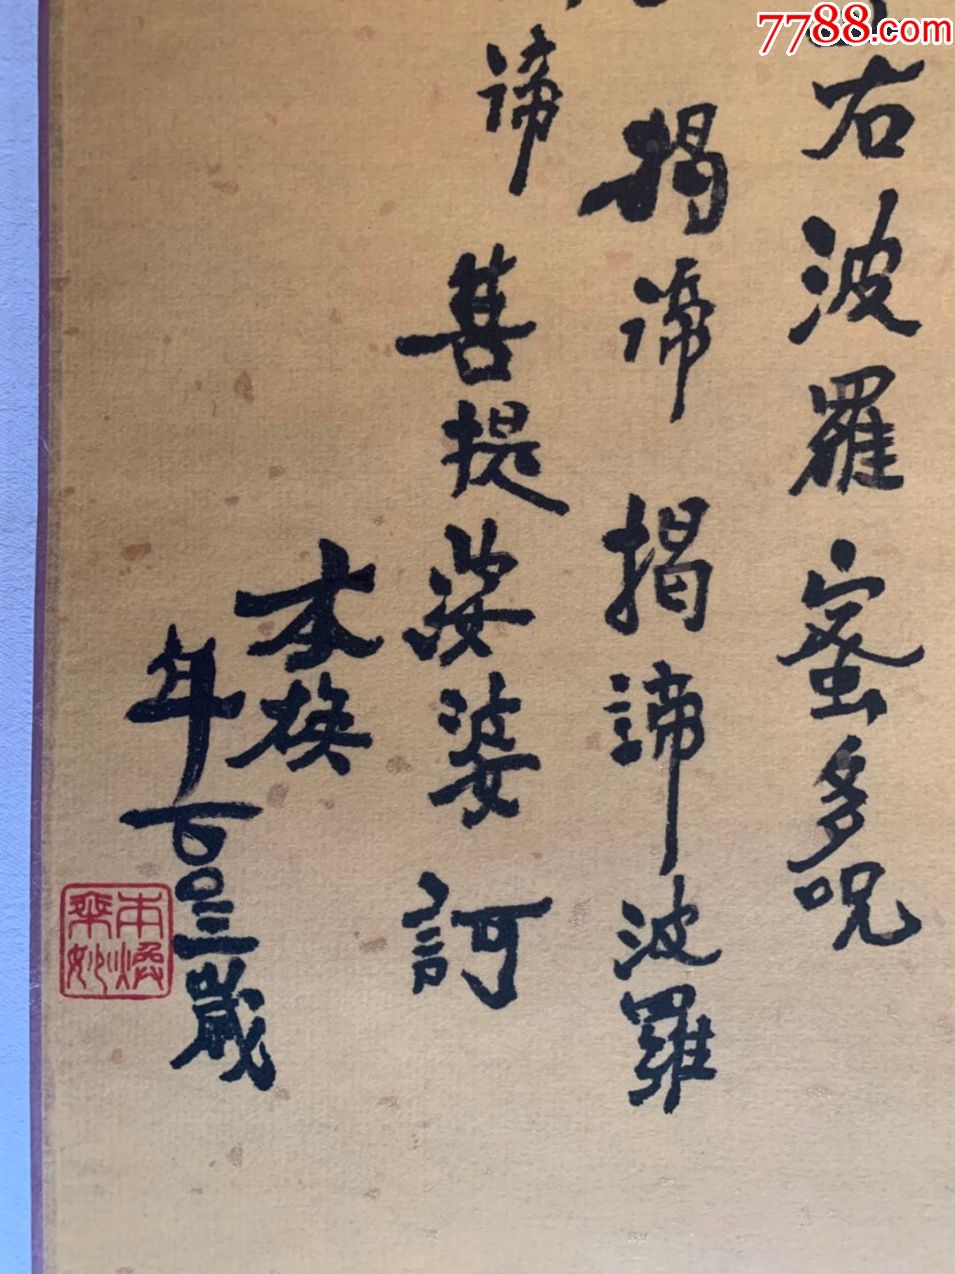 若波羅蜜多呪
揭諦揭諦波羅
諦菩提娑婆訶
本焕
年百〇三歲
本煥
7788.com